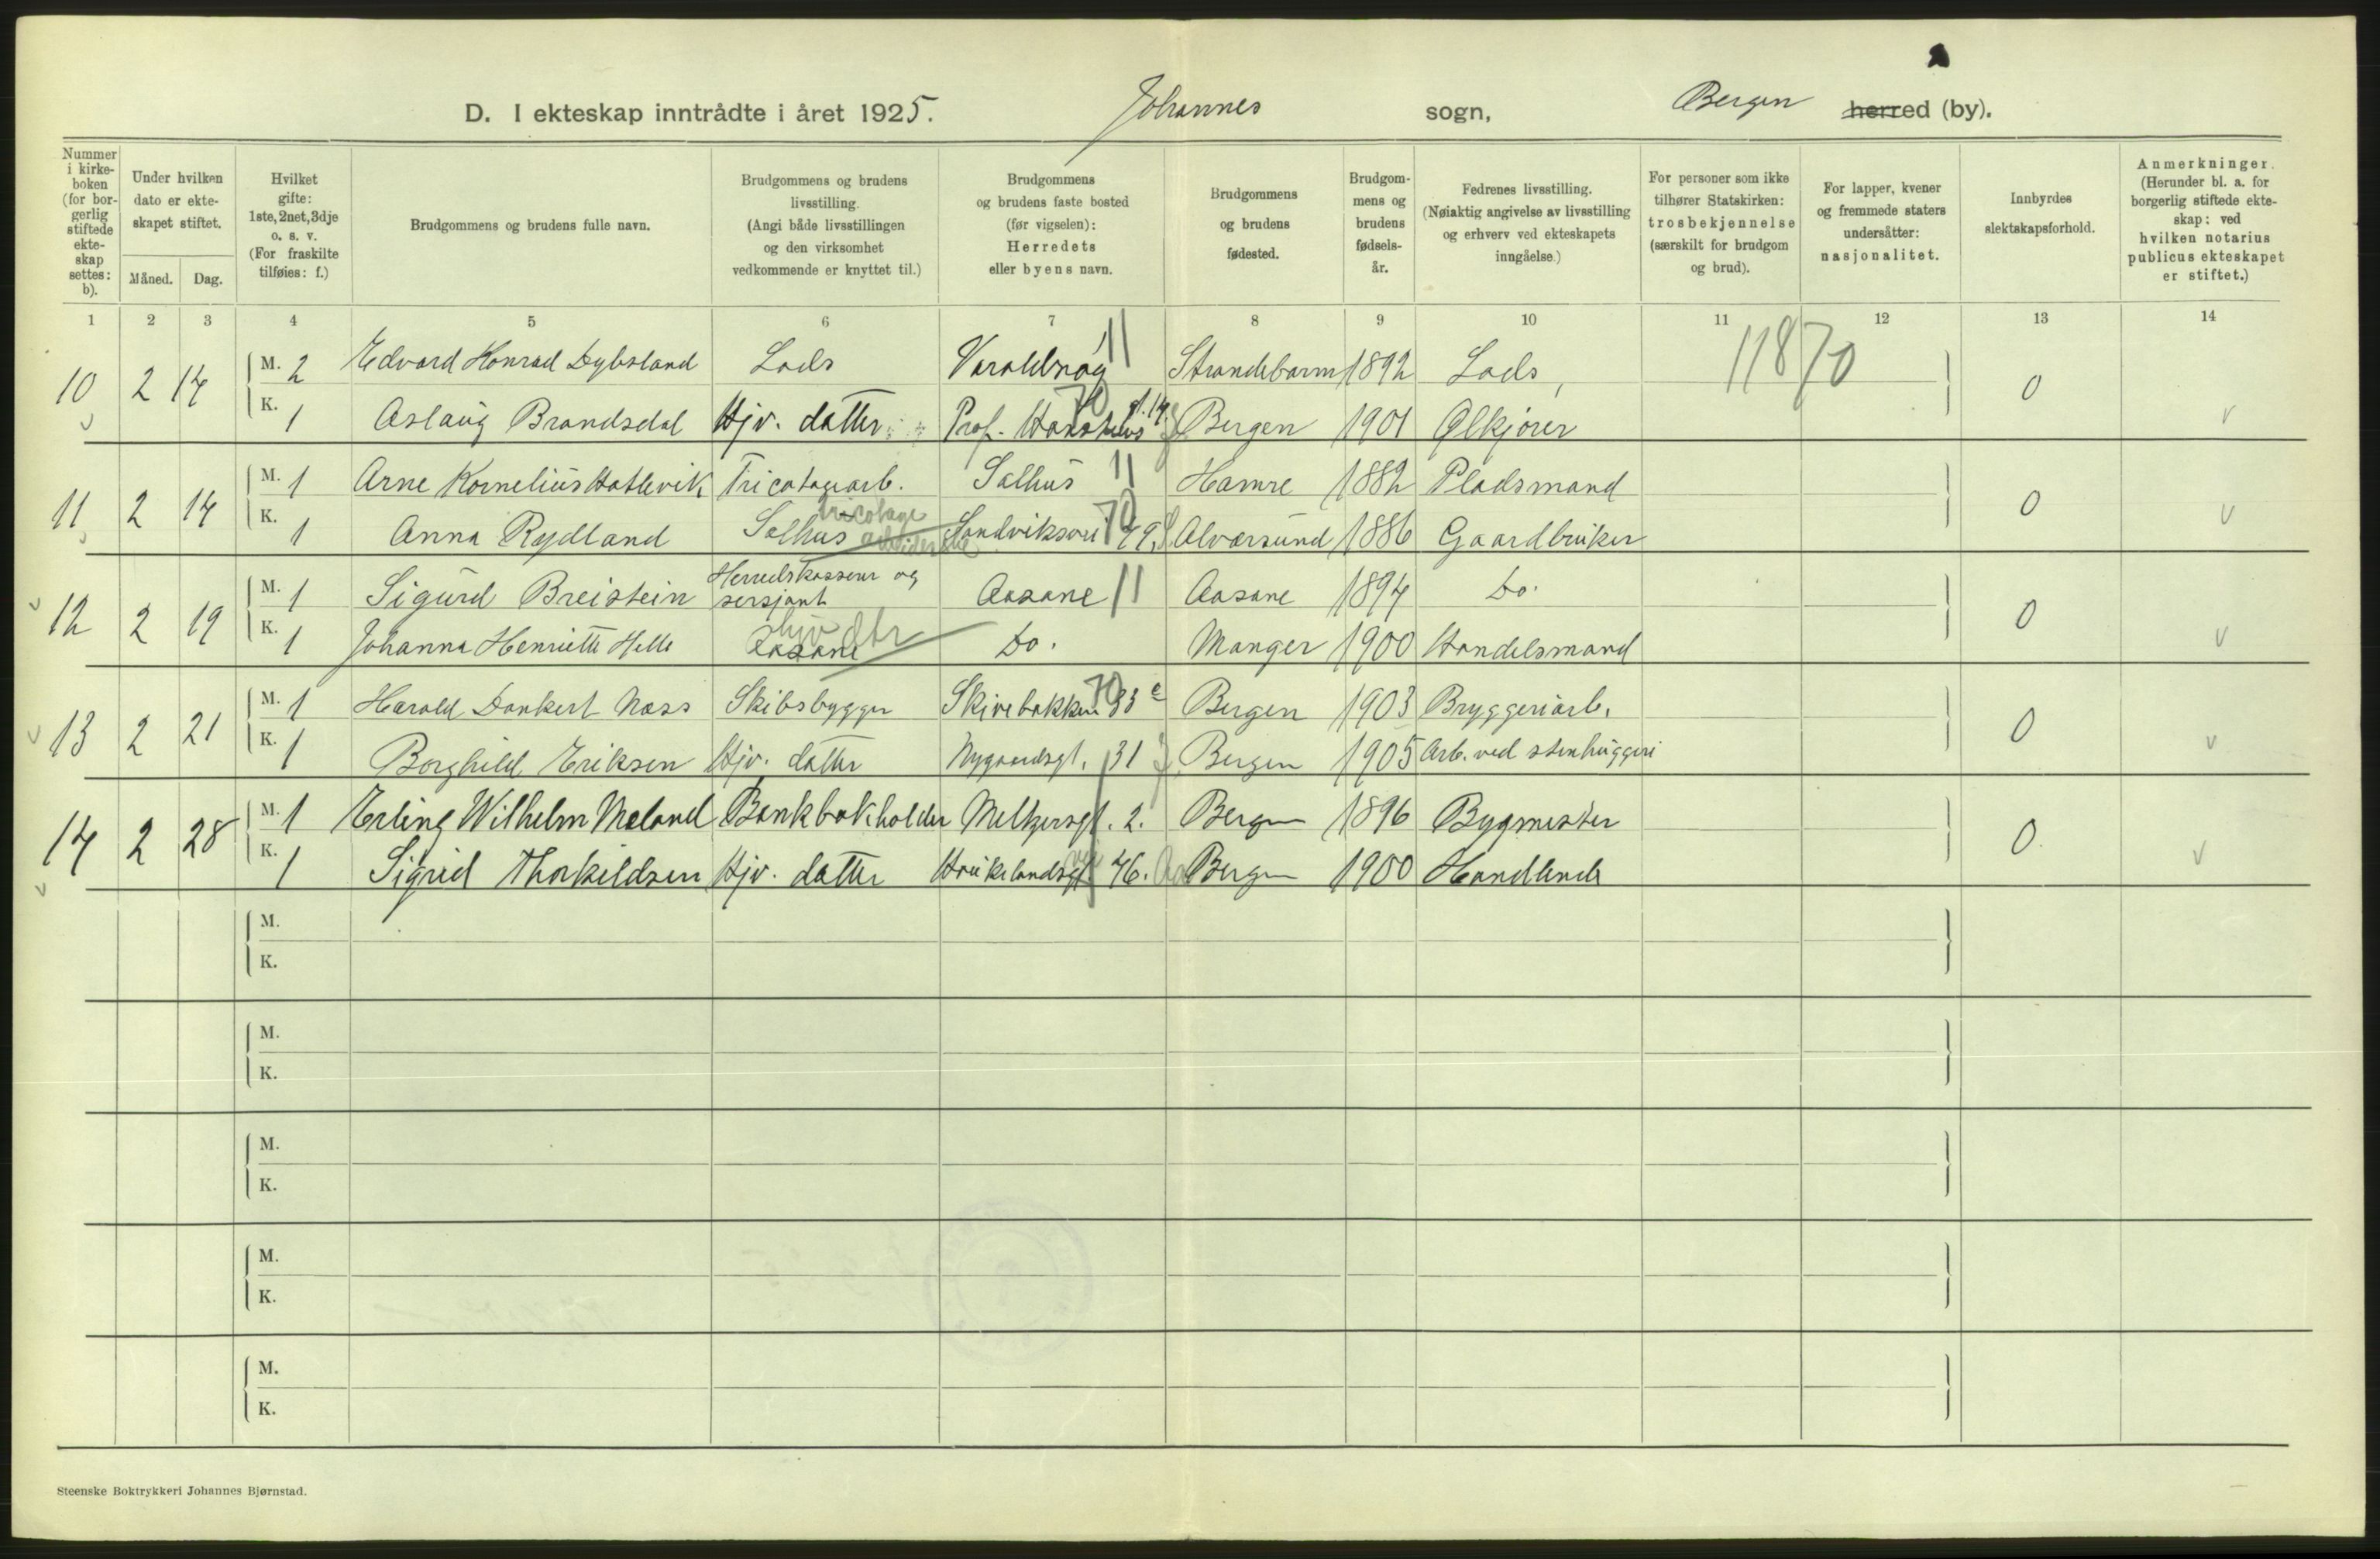 D. I ekteskap inntrådte i året 1925. Johannes sogn, Bergen herred (by).
Nummer i kirkeboken (for borgerlig stiftede ekteskap settes: b).
Under hvilken dato er ekteskapet stiftet.
Måned. Dag.
Hvilket gifte: 1ste, 2net, 3dje o. s. v. (For fraskilte tilføies: f.)
Brudgommens og brudens fulle navn.
Brudgommens og brudens livsstilling. (Angi både livsstillingen og den virksomhet vedkommende er knyttet til.)
Brudgommens og brudens faste bosted (før vigselen): Herredets eller byens navn.
Brudgommens og brudens fødested.
Brudgommens og brudens fødselsår.
Fedrenes livsstilling. (Nøiaktig angivelse av livsstilling og erhverv ved ekteskapets inngåelse.)
For personer som ikke tilhører Statskirken: trosbekjennelse (særskilt for brudgom og brud).
For lapper, kvener og fremmede staters undersåtter: nasjonalitet.
Innbyrdes slektskapsforhold.
Anmerkninger. (Herunder bl. a. for borgerlig stiftede ekteskap: ved hvilken notarius publicus ekteskapet er stiftet.)
1 2 3 4 5 6 7 8 9 10 11 12 13 14
10 2 14 M. 2 Edvard Konrad Dybsland Lods Varaldsøy 11 Strandebarm 1892 Lods 118/70 0
K. 1 Aslaug Brandsdal Hjv. datter Prof. 70 Bergen 1901 Ølkjører v
11 2 14 M. 1 Arne Kornelius Hatlevik Tricotagearb. Salhus 11 Hamre 1882 Pladsmand 0
K. 1 Anna Rydland Salhus tricotage arbeiderske Sandviksvei 70 Alversund 1886 Gaardbruker v
12 2 19 M. 1 Sigurd Breistein Herredskasserer og sersjant Aasane 11 Aasane 1894 Do. 0
K. 1 Johanna Henriette Helle Aasane hjv dtr Do. Manger 1900 Handelsmand v
13 2 21 M. 1 Harald Dankert Næss Skibsbygger Skivebakken 33 c 70 Bergen 1903 Bryggeriarb. 0
K. 1 Borghild Eriksen Hjv. datter Nygaardsgt. 31 Bergen 1905 Arb. ved stenhuggeri v
14 2 28 M. 1 Erling Wilhelm Meland Bankbokholder Meltzersgt. 2. Bergen 1896 Bygmester 0
K. 1 Sigrid Thorkildsen Hjv. datter Haukelandsgt. vei 46. Bergen 1900 Handlende v
M.
K.
M.
K.
M.
K.
M.
K.
M.
K.
Steenske Boktrykkeri Johannes Bjørnstad.